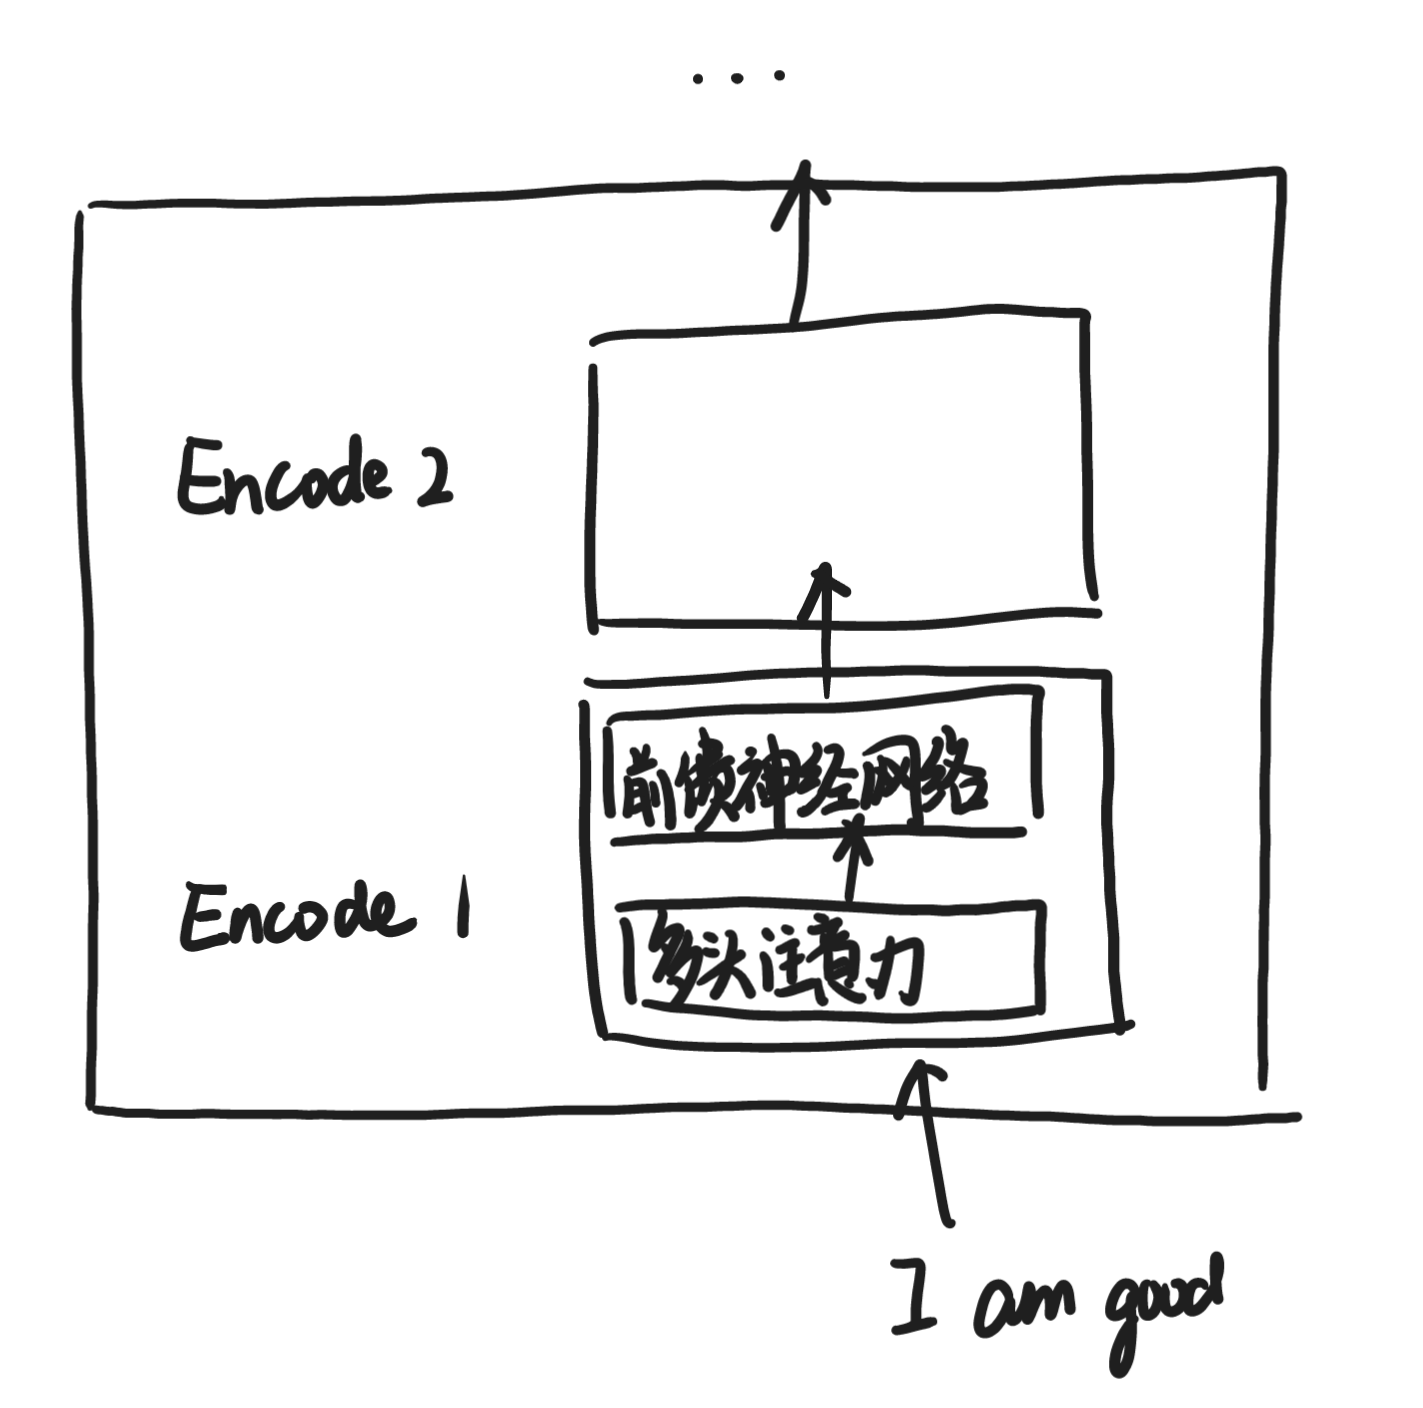 ...
Encode 2
前馈神经网络
Encode 1
多头注意力
I am good